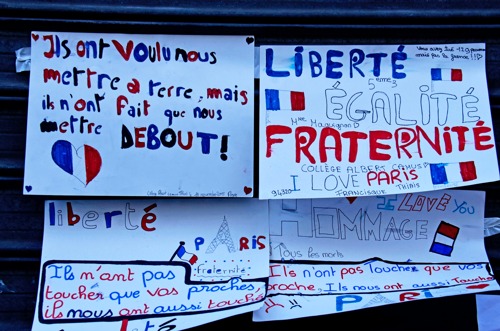 Ils ont voulu nous
mettre a terre, mais
ils n'ont fait que nous
mettre DEBOUT!
LIBERTÉ
5ème3
ÉGALITÉ
FRATERNITÉ
COLLÈGE ALBERT CAMUS
I LOVE PARIS
94320
THIAIS
liberté
PARIS
fraternité
Ils m'ont pas
toucher que vos proches,
ils nous ont aussi touché
I LOVE YOU
HOMMAGE
Tous les morts
Ils n'ont pas toucher que vos
proche, Ils nous ont aussi
PARIS